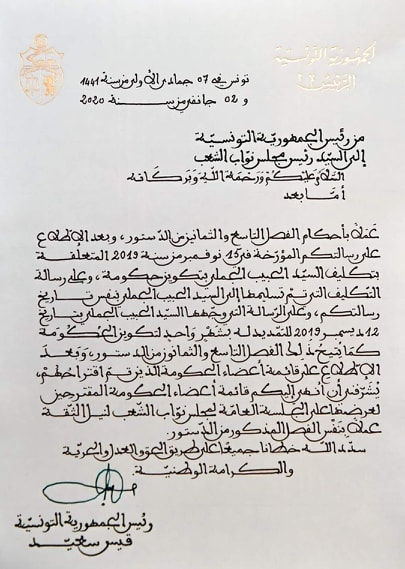 الجمهورية التونسية
الرئيس
تونس في 07 جمادى الأولى من سنة 1441
و 02 جانفي من سنة 2020
من رئيس الجمهورية التونسية
إلى السيد رئيس مجلس نواب الشعب
السّلام عليكم ورحمة الله وبركاته
أما بعد
عملا بأحكام الفصل التاسع والثمانين من الدستور، وبعد الاطلاع
على رسالتكم المؤرخة في 15 نوفمبر من سنة 2019 المتعلقة
بتكليف السيد الحبيب الجملي بتكوين حكومة، وعلى رسالة
التكليف التي تم تسليمها إلى السيد الحبيب الجملي بنفس تاريخ
رسالتكم، وعلى الرسالة التي وجهها السيد الحبيب الجملي بتاريخ
12 ديسمبر 2019 للتمديد له بشهر واحد لتكوين الحكومة
كما يتيح ذلك الفصل التاسع والثمانون من الدستور، وبعد
الاطلاع على قائمة أعضاء الحكومة الذين تم اقتراحهم،
يشرفني أن أنهي إليكم قائمة أعضاء الحكومة المقترحين
لعرضها على الجلسة العامة لمجلس نواب الشعب لنيل الثقة
عملا بنفس الفصل المذكور من الدستور.
سدد الله خطانا جميعا على طريق الحق والعدل والحرية
والكرامة الوطنية.
رئيس الجمهورية التونسية
قيس سعيد